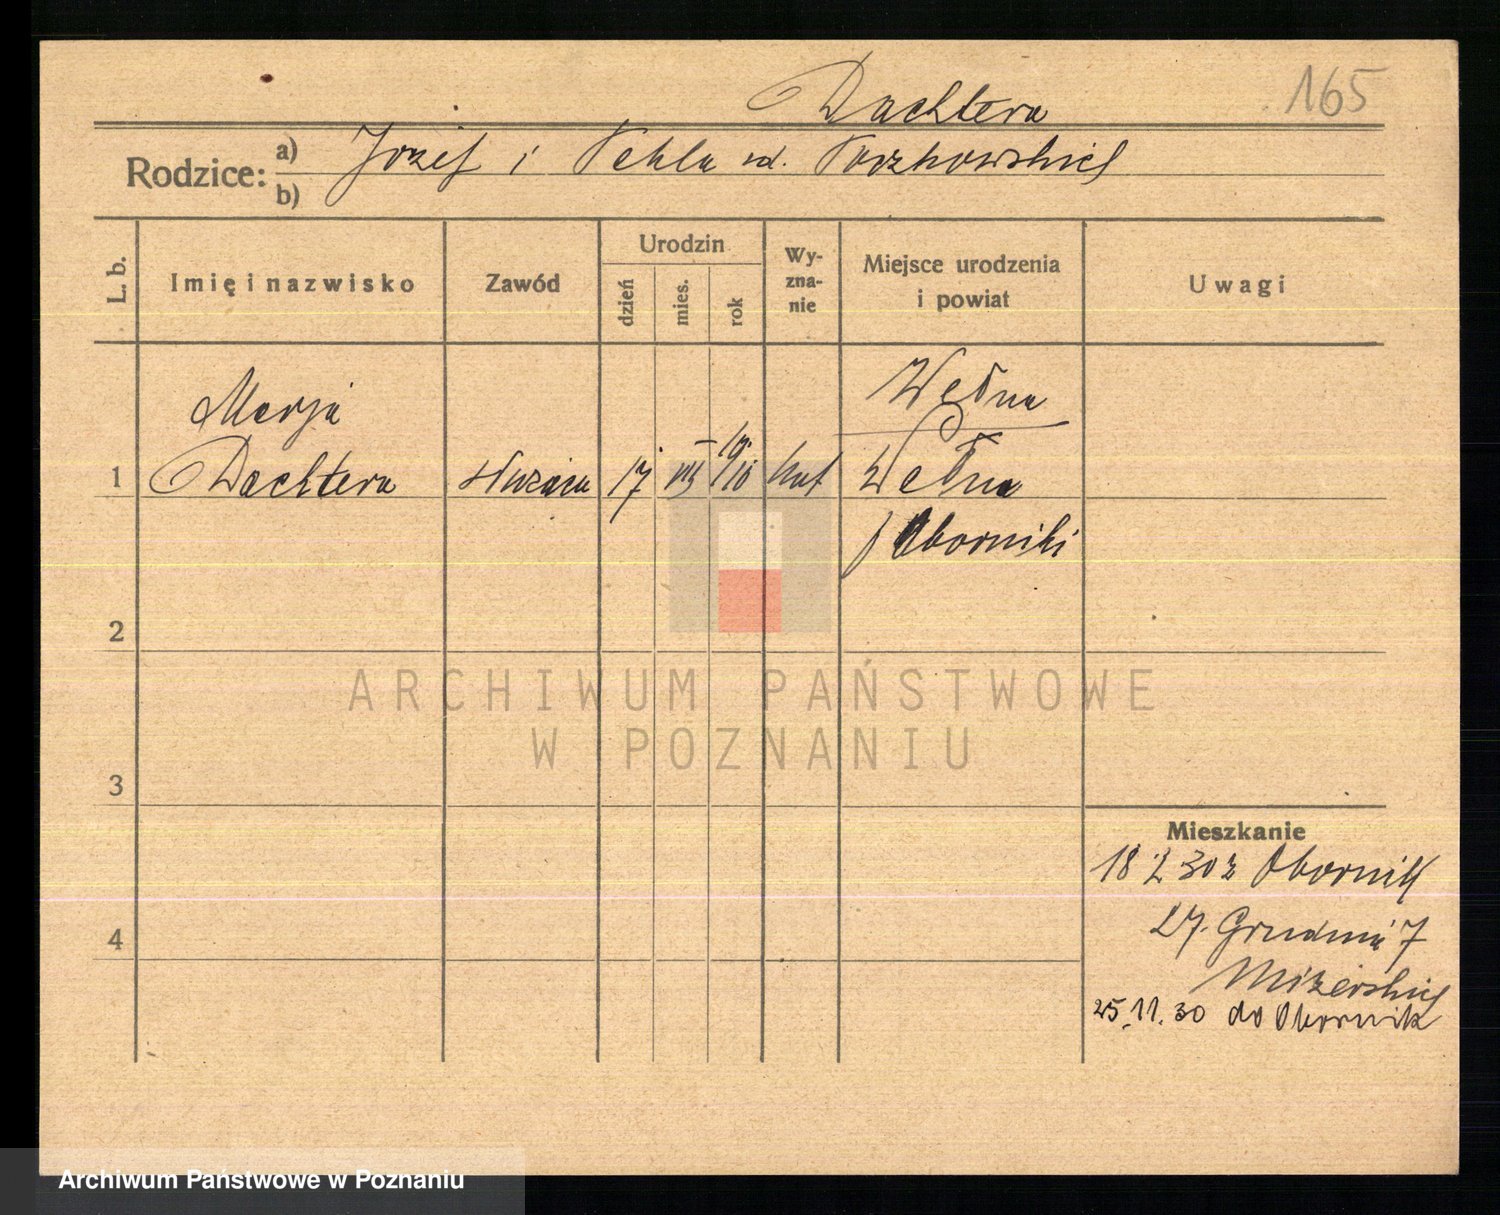 165
Dachtera
Rodzice: a) Józef i Tekla zd.
b)
L. b.
Imię i nazwisko
Zawód
Urodzin
dzień
mies.
rok
Wy-
zna-
nie
Miejsce urodzenia
i powiat
Uwagi
Marja
Wełna
1 Dachtera służąca 17 VIII 1910 kat Wełna
p Oborniki
2
ARCHIWUM PAŃSTWOWE
W POZNANIU
3
Mieszkanie
18 2 30 z Obornik
27. Grudnia 7
4
25.11.30 do Obornik
Archiwum Państwowe w Poznaniu